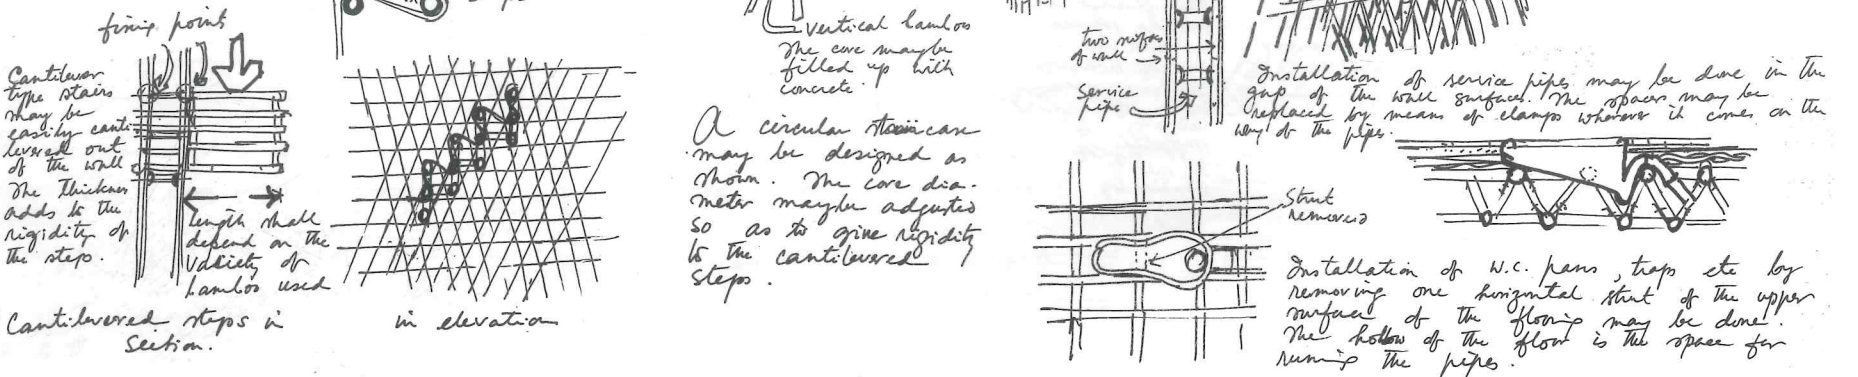 fixing points
Cantilever
type stairs
may be
easily canti-
levered out
of the wall
The thicknes
adds to the
rigidity of
the step.
length shall
depend on the
Variety of
bamboo used
Cantilevered steps in
section.
in elevation
vertical bamboo
The core maybe
filled up with
concrete.
A circular staircase
may be designed as
shown. The core dia-
meter maybe adjusted
so as to give rigidity
to the cantilevered
steps.
two surfaces
of wall
service
pipe
Installation of service pipes may be done in the
gap of the wall surfaces. The spacers may be
replaced by means of clamps wherever it comes on the
way of the pipes.
Strut
removed
Installation of W.C. pans, traps etc by
removing one horizontal strut of the upper
surface of the flooring may be done.
The hollow of the floor is the space for
running the pipes.